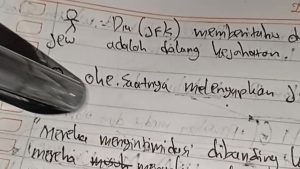 : Dia (JFK) memberitahu d
Jew adalah dalang kejahatan.
oke. Saatnya melenyapkan J
"Mereka mengintimidasi dibanding k
mereka